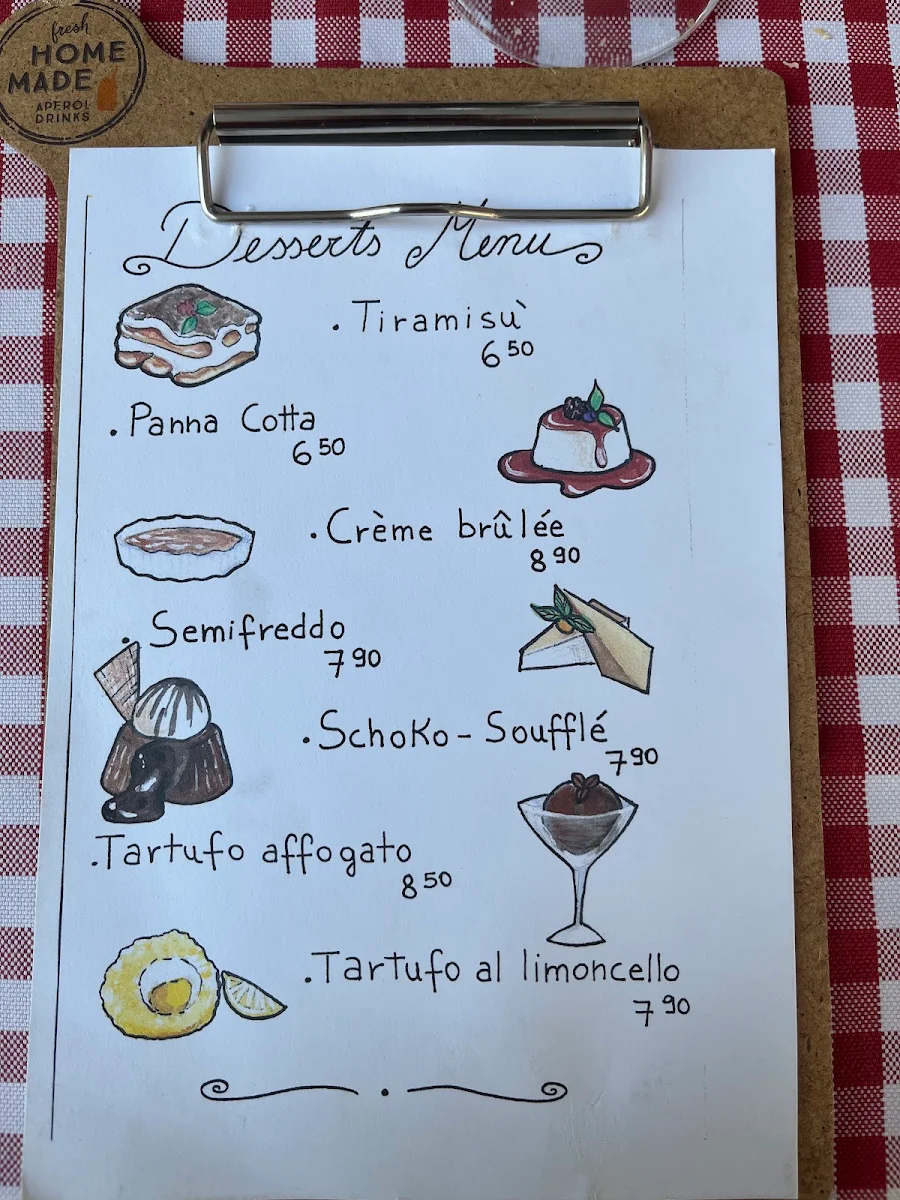 fresh
HOME
MADE
APEROL
DRINKS
Desserts Menu
. Tiramisù
6 50
. Panna Cotta
6 50
. Crème brûlée
8 90
. Semifreddo
7 90
. Schoko - Soufflé
7 90
. Tartufo affogato
8 50
. Tartufo al limoncello
7 90